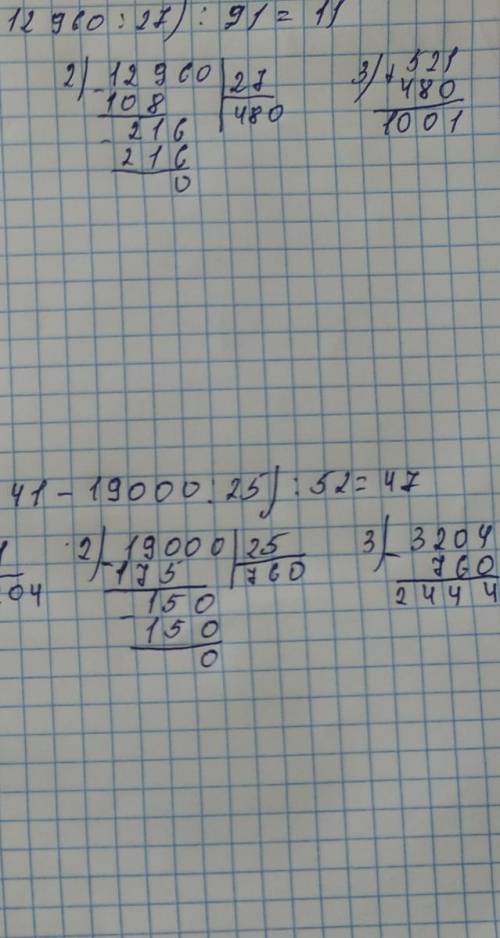 12 960 : 27) : 91 = 11
2) - 12960 | 27
108 | 480
- 216
216
0
3) + 521
480
1001
41 - 19000 : 25) : 52 = 47
1
04
2) - 19000 | 25
175 | 760
- 150
150
0
3) - 3204
760
2444